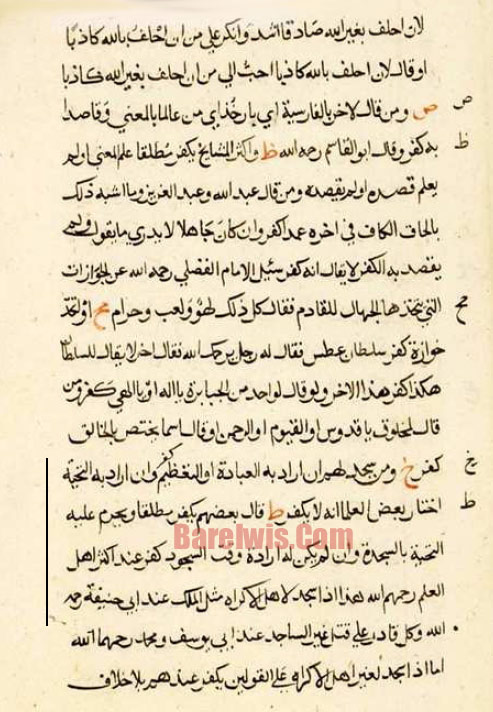 لان احلف بغير الله صادقا اشد وانكر علي من ان احلف بالله كاذبا
او قال لان احلف بالله كاذبا احب الي من ان احلف بغير الله كاذبا
ص ص ومن قال لاخر بالفارسية اي بار خداي من عالما بالمعني وقاصدا
ظ به كفر وقال ابو القاسم رحمه الله ظ واكثر المشايخ يكفر مطلقا علم المعني او لم
يعلم قصده او لم يقصده ومن قال عبد الله وعبد العزيز وما اشبه ذلك
بالحاق الكاف في اخره عمدا كفر وان كان جاهلا لا يدري ما يقول ولم
يقصد به الكفر لا يقال انه كفر سئل الامام الفضلي رحمه الله عن الجوازات
مح التي يتخذها الجهال للقادم فقال كل ذلك لهو ولعب وحرام مح او اتخذ
جوازة كفر سلطان عطس فقال له رجل يرحمك الله فقال اخر لا يقال للسلطان
هكذا كفر هذا الاخر ولو قال لواحد من الجبابرة يا اله او يا الهي كفر ومن
قال لمخلوق يا قدوس او القيوم او الرحمن او قال اسما يختص بالخالق
خ كفر خ ومن سجد لهم ان اراد به العبادة او التعظيم كفر وان اراد به التحية
ظ اختار بعض العلما انه لا يكفر ظ قال بعضهم يكفر مطلقا ويحرم عليه
Barelwis.Com
التحية بالسجدة وان لم يكن له ارادة وقت السجود كفر عند اكثر اهل
العلم رحمهم الله هذا اذا سجد لاهل الاكراه مثل الملك عند ابي حنيفة رحمه
الله وكل قادر علي قتل غير الساجد عند ابي يوسف ومحمد رحمهما الله
اما اذا سجد لغير اهل الاكراه علي القولين يكفر عندهم بلا خلاف